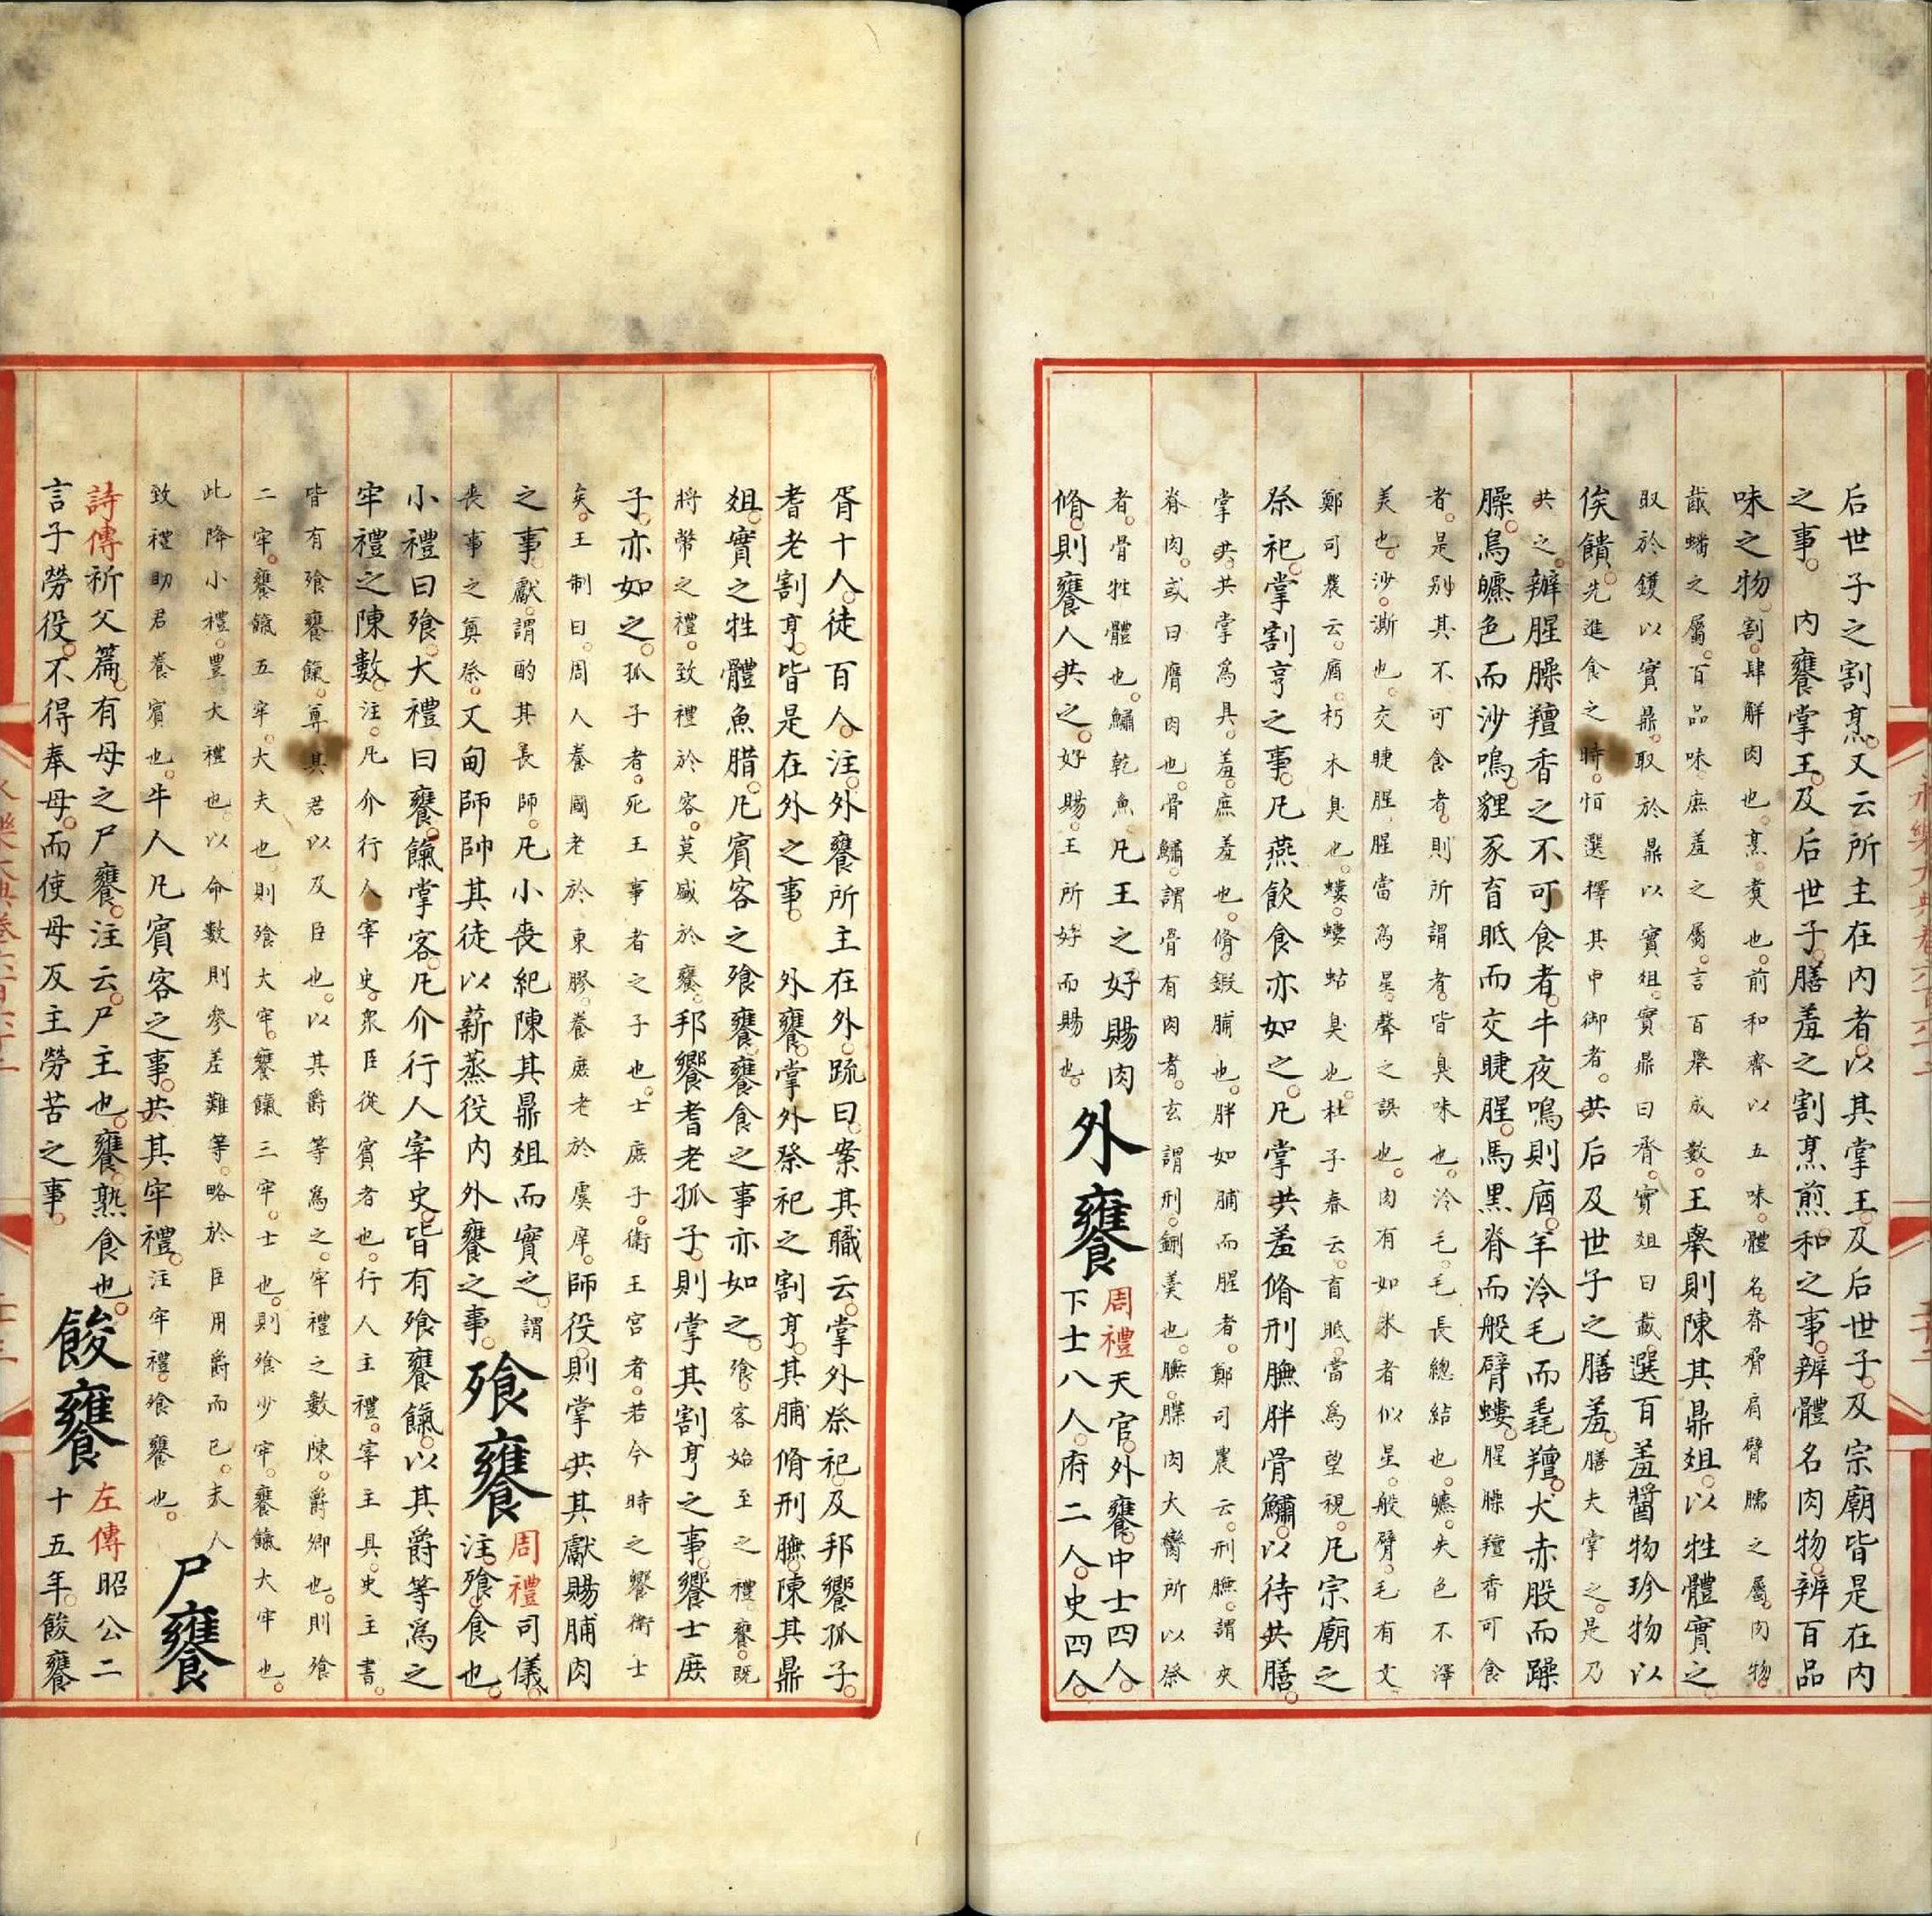 后世子之割烹又云所主在内者以其掌王及后世子及宗廟皆是在内
之事　内饔掌王及后世子膳羞之割烹煎和之事辨體名肉物辨百品
味之物割肆解肉也烹煑也前和齊以五味體名脊脅肩臂臑之屬肉物
胾燔之屬百品味庶羞之屬言百舉成數王舉則陳其鼎俎以牲體實之
取於鑊以實鼎取於鼎以實俎實鼎曰脀實俎曰胾選百羞醬物珍物以
俟饋先進食之時恒選擇其中御者共后及世子之膳羞膳夫掌之是乃
共之辨腥臊羶香之不可食者牛夜鳴則庮羊泠毛而毳羶犬赤股而躁
臊鳥皫色而沙鳴貍豕盲眡而交睫腥馬黑脊而般臂螻腥臊羶香可食
者是别其不可食者則所謂者皆臭味也泠毛毛長總結也皫失色不澤
美也沙澌也交睫腥腥當爲星聲之誤也肉有如米者似星般臂毛有文
鄭司農云庮朽木臭也螻螻蛄臭也杜子春云盲眡當爲望視凡宗廟之
祭祀掌割亨之事凡燕飲食亦如之凡掌共羞脩刑膴胖骨鱐以待共膳
掌共共掌爲具羞庶羞也脩鍜脯也胖如脯而腥者鄭司農云刑膴謂夾
脊肉或曰膺肉也骨鱐謂骨有肉者玄謂刑鉶羹也膴䐑肉大臠所以祭
者骨牲體也鱐乾魚凡王之好賜肉
脩則饔人共之好賜王所好而賜也
外饔
周禮天官外饔中士四人
下士八人府二人史四人
胥十人徒百人注外饔所主在外疏曰案其職云掌外祭祀及邦饗孤子
耆老割亨皆是在外之事　外饔掌外祭祀之割亨共其脯脩刑膴陳其鼎
俎實之牲體魚腊凡賓客之飧饔饔食之事亦如之飧客始至之禮饔既
將幣之禮致禮於客莫盛於饔邦饗耆老孤子則掌其割亨之事饗士庶
子亦如之孤子者死王事者之子也士庶子衛王宮者若今時之饗衛士
矣王制曰周人養國老於東膠養庶老於虞庠師役則掌共其獻賜脯肉
之事獻謂酌其長師凡小喪紀陳其鼎俎而實之謂
喪事之奠祭又甸師帥其徒以薪蒸役内外饔之事
飧饔
周禮司儀
注飧食也
小禮曰飧大禮曰饔餼掌客凡介行人宰史皆有飧饔餼以其爵等爲之
牢禮之陳數注凡介行人宰史衆臣從賓者也行人主禮宰主具史主書
皆有飧饔餼尊其君以及臣也以其爵等爲之牢禮之數陳爵卿也則飧
二牢饔餼五牢大夫也則飧大牢饔餼三牢士也則飧少牢饔餼大牢也
此降小禮豐大禮也以命數則參差難等略於臣用爵而已夫人
致禮助君養賓也牛人凡賓客之事共其牢禮注牢禮飧饔也
尸饔
詩傳祈父篇有母之尸饔注云尸主也饔熟食也
言予勞役不得奉母而使母反主勞苦之事
餕饔
左傳昭公二
十五年餕饔